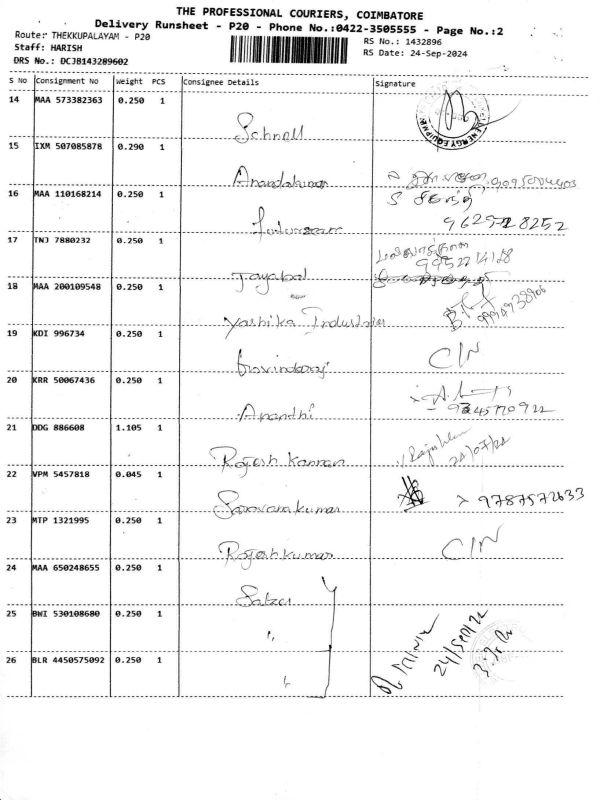 THE PROFESSIONAL COURIERS, COIMBATORE
Delivery Runsheet - P20 - Phone No.:0422-3505555 - Page No.:2
Route: THEKKUPALAYAM - P20
RS No.: 1432896
Staff: HARISH
RS Date: 24-Sep-2024
DRS No.: DCJB143289602
S No Consignment No Weight PCS Consignee Details Signature
14 MAA 573382363 0.250 1
Schnell
15 IXM 507085878 0.290 1
Anandakumar
16 MAA 110168214 0.250 1
9629728252
17 TNJ 7880232 0.250 1
Jayabal
18 MAA 200109548 0.250 1
Yashika Industries
19 KDI 996734 0.250 1
Govindaraj C/N
20 KRR 50067436 0.250 1
Anandhi
21 DDG 886608 1.105 1
Rajesh Kannan
22 VPM 5457818 0.045 1
Saravanakumar 9787572633
23 MTP 1321995 0.250 1
Rajesh kumar C/N
24 MAA 650248655 0.250 1
Salzer
25 BWI 530108680 0.250 1
"
26 BLR 4450575092 0.250 1
"